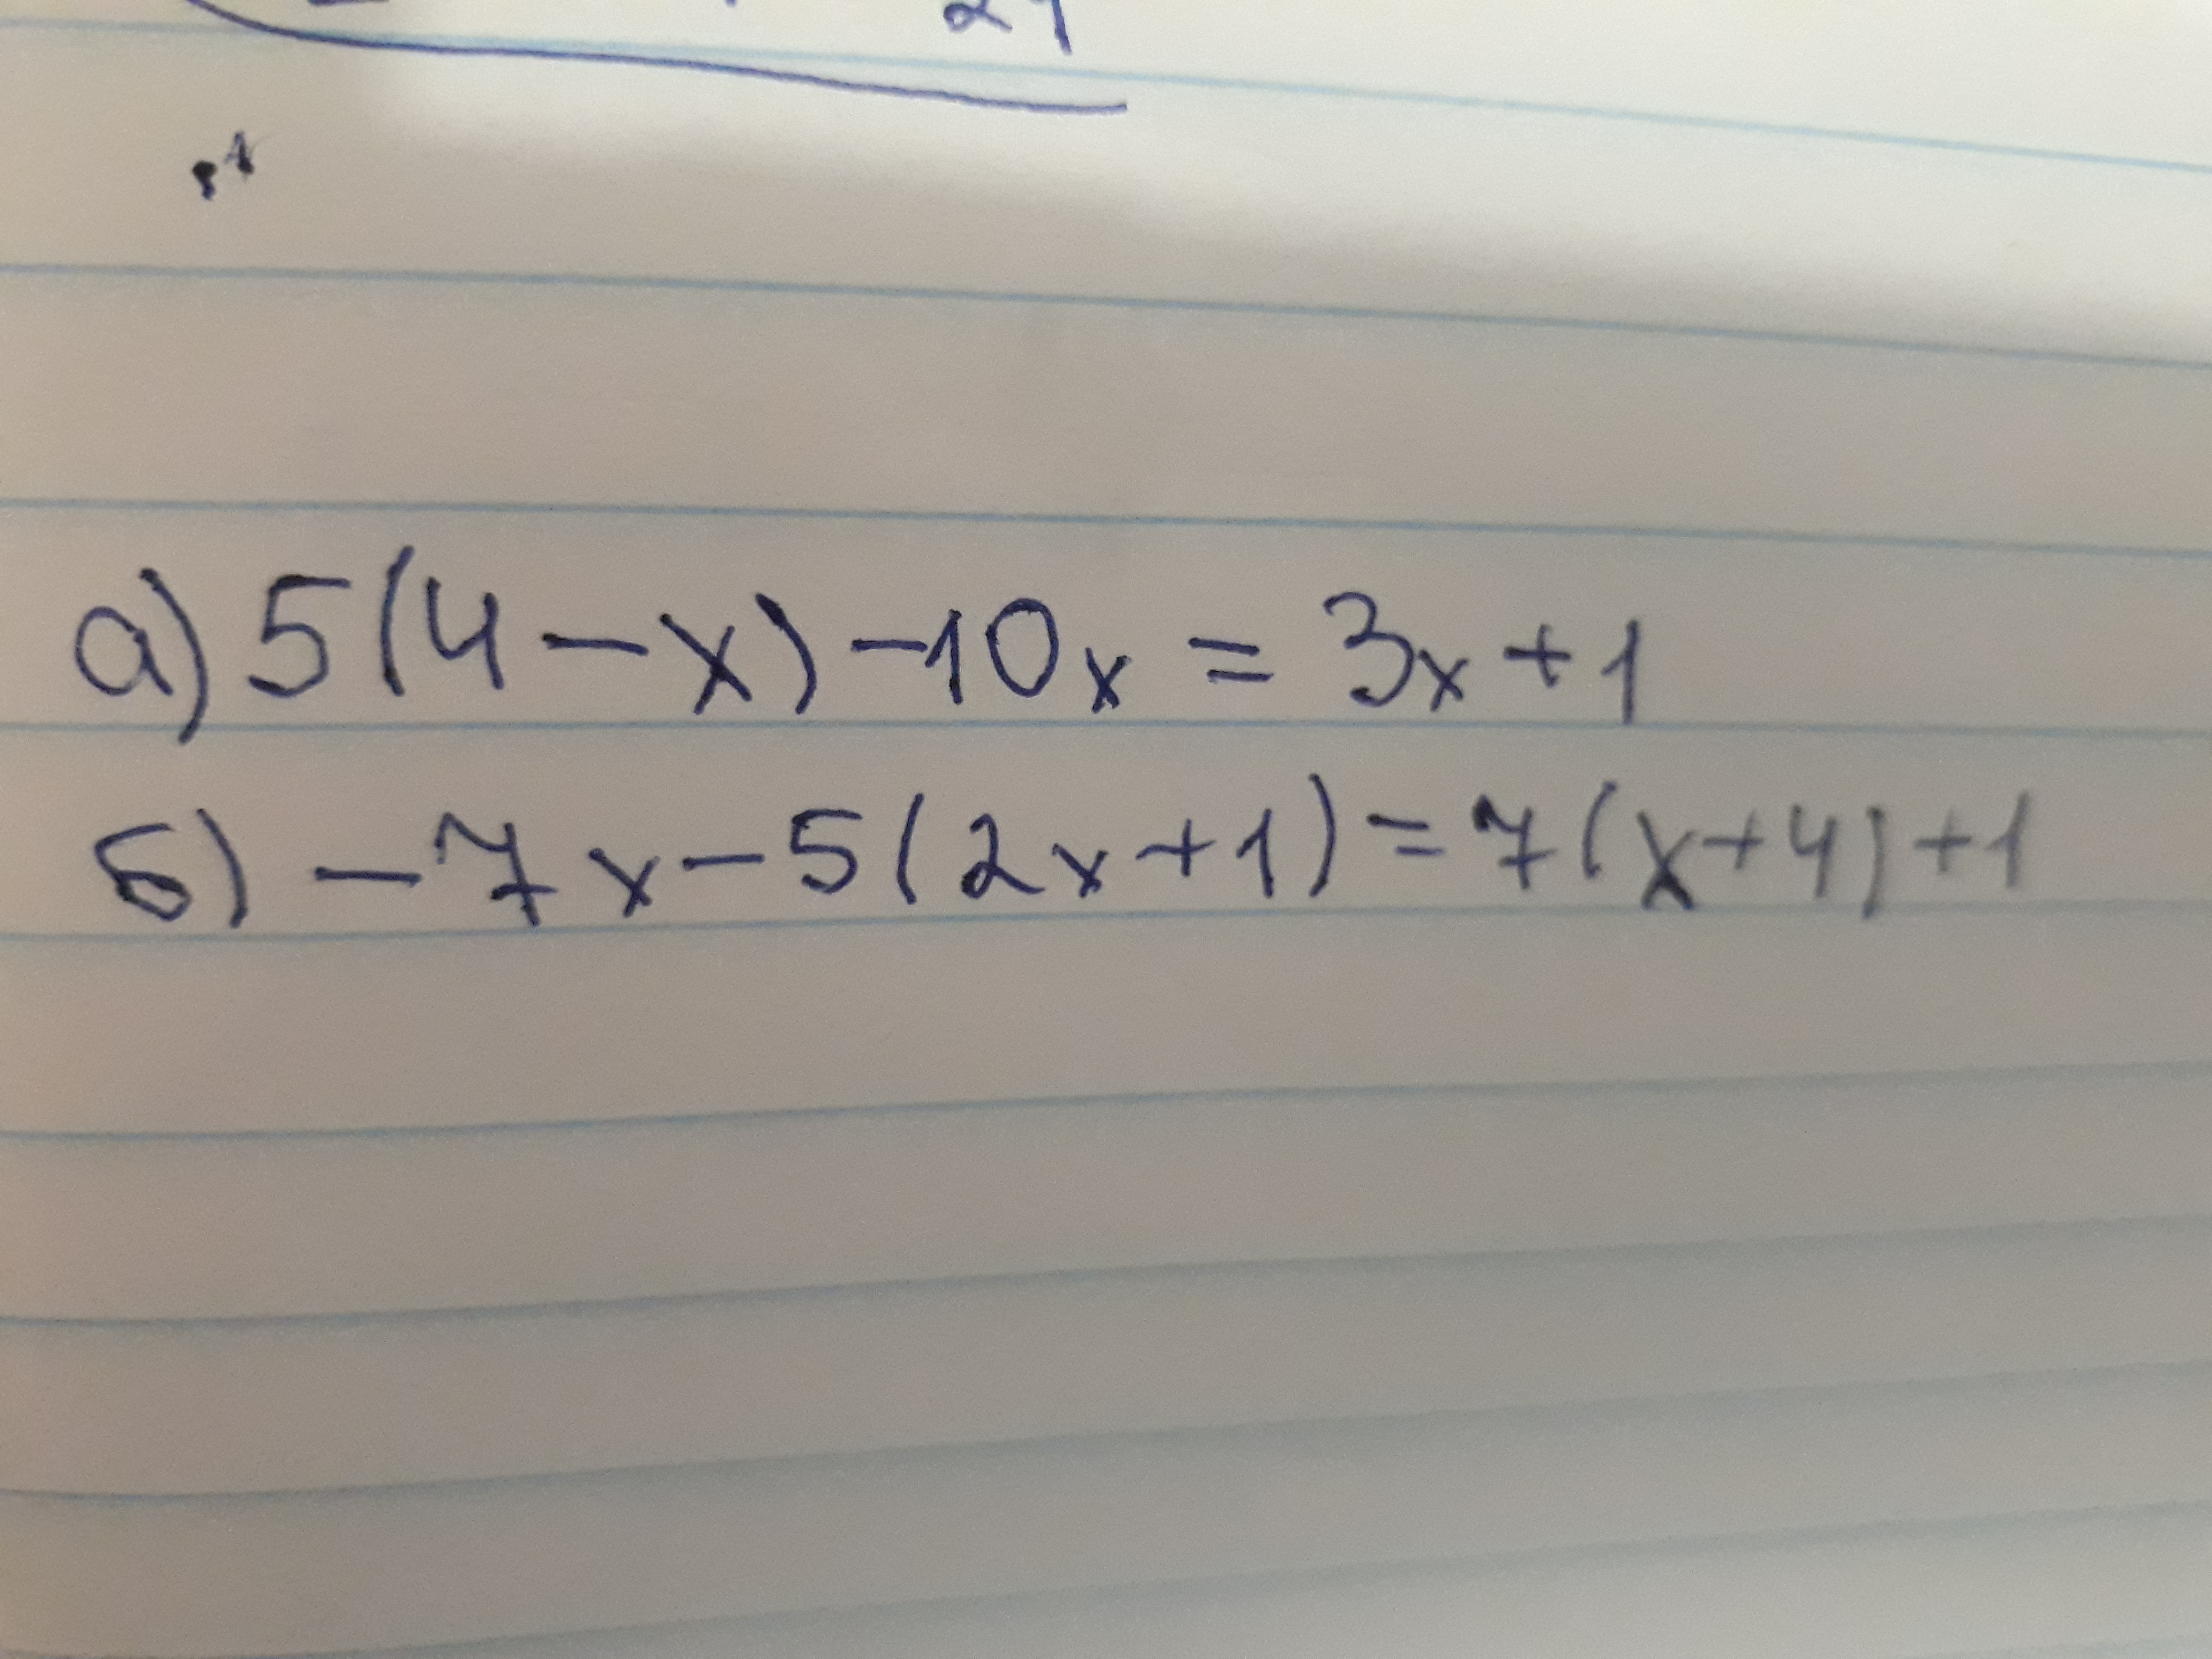 а) 5(4-x)-10x = 3x+1
б) -7x-5(2x+1)=7(x+4)+1